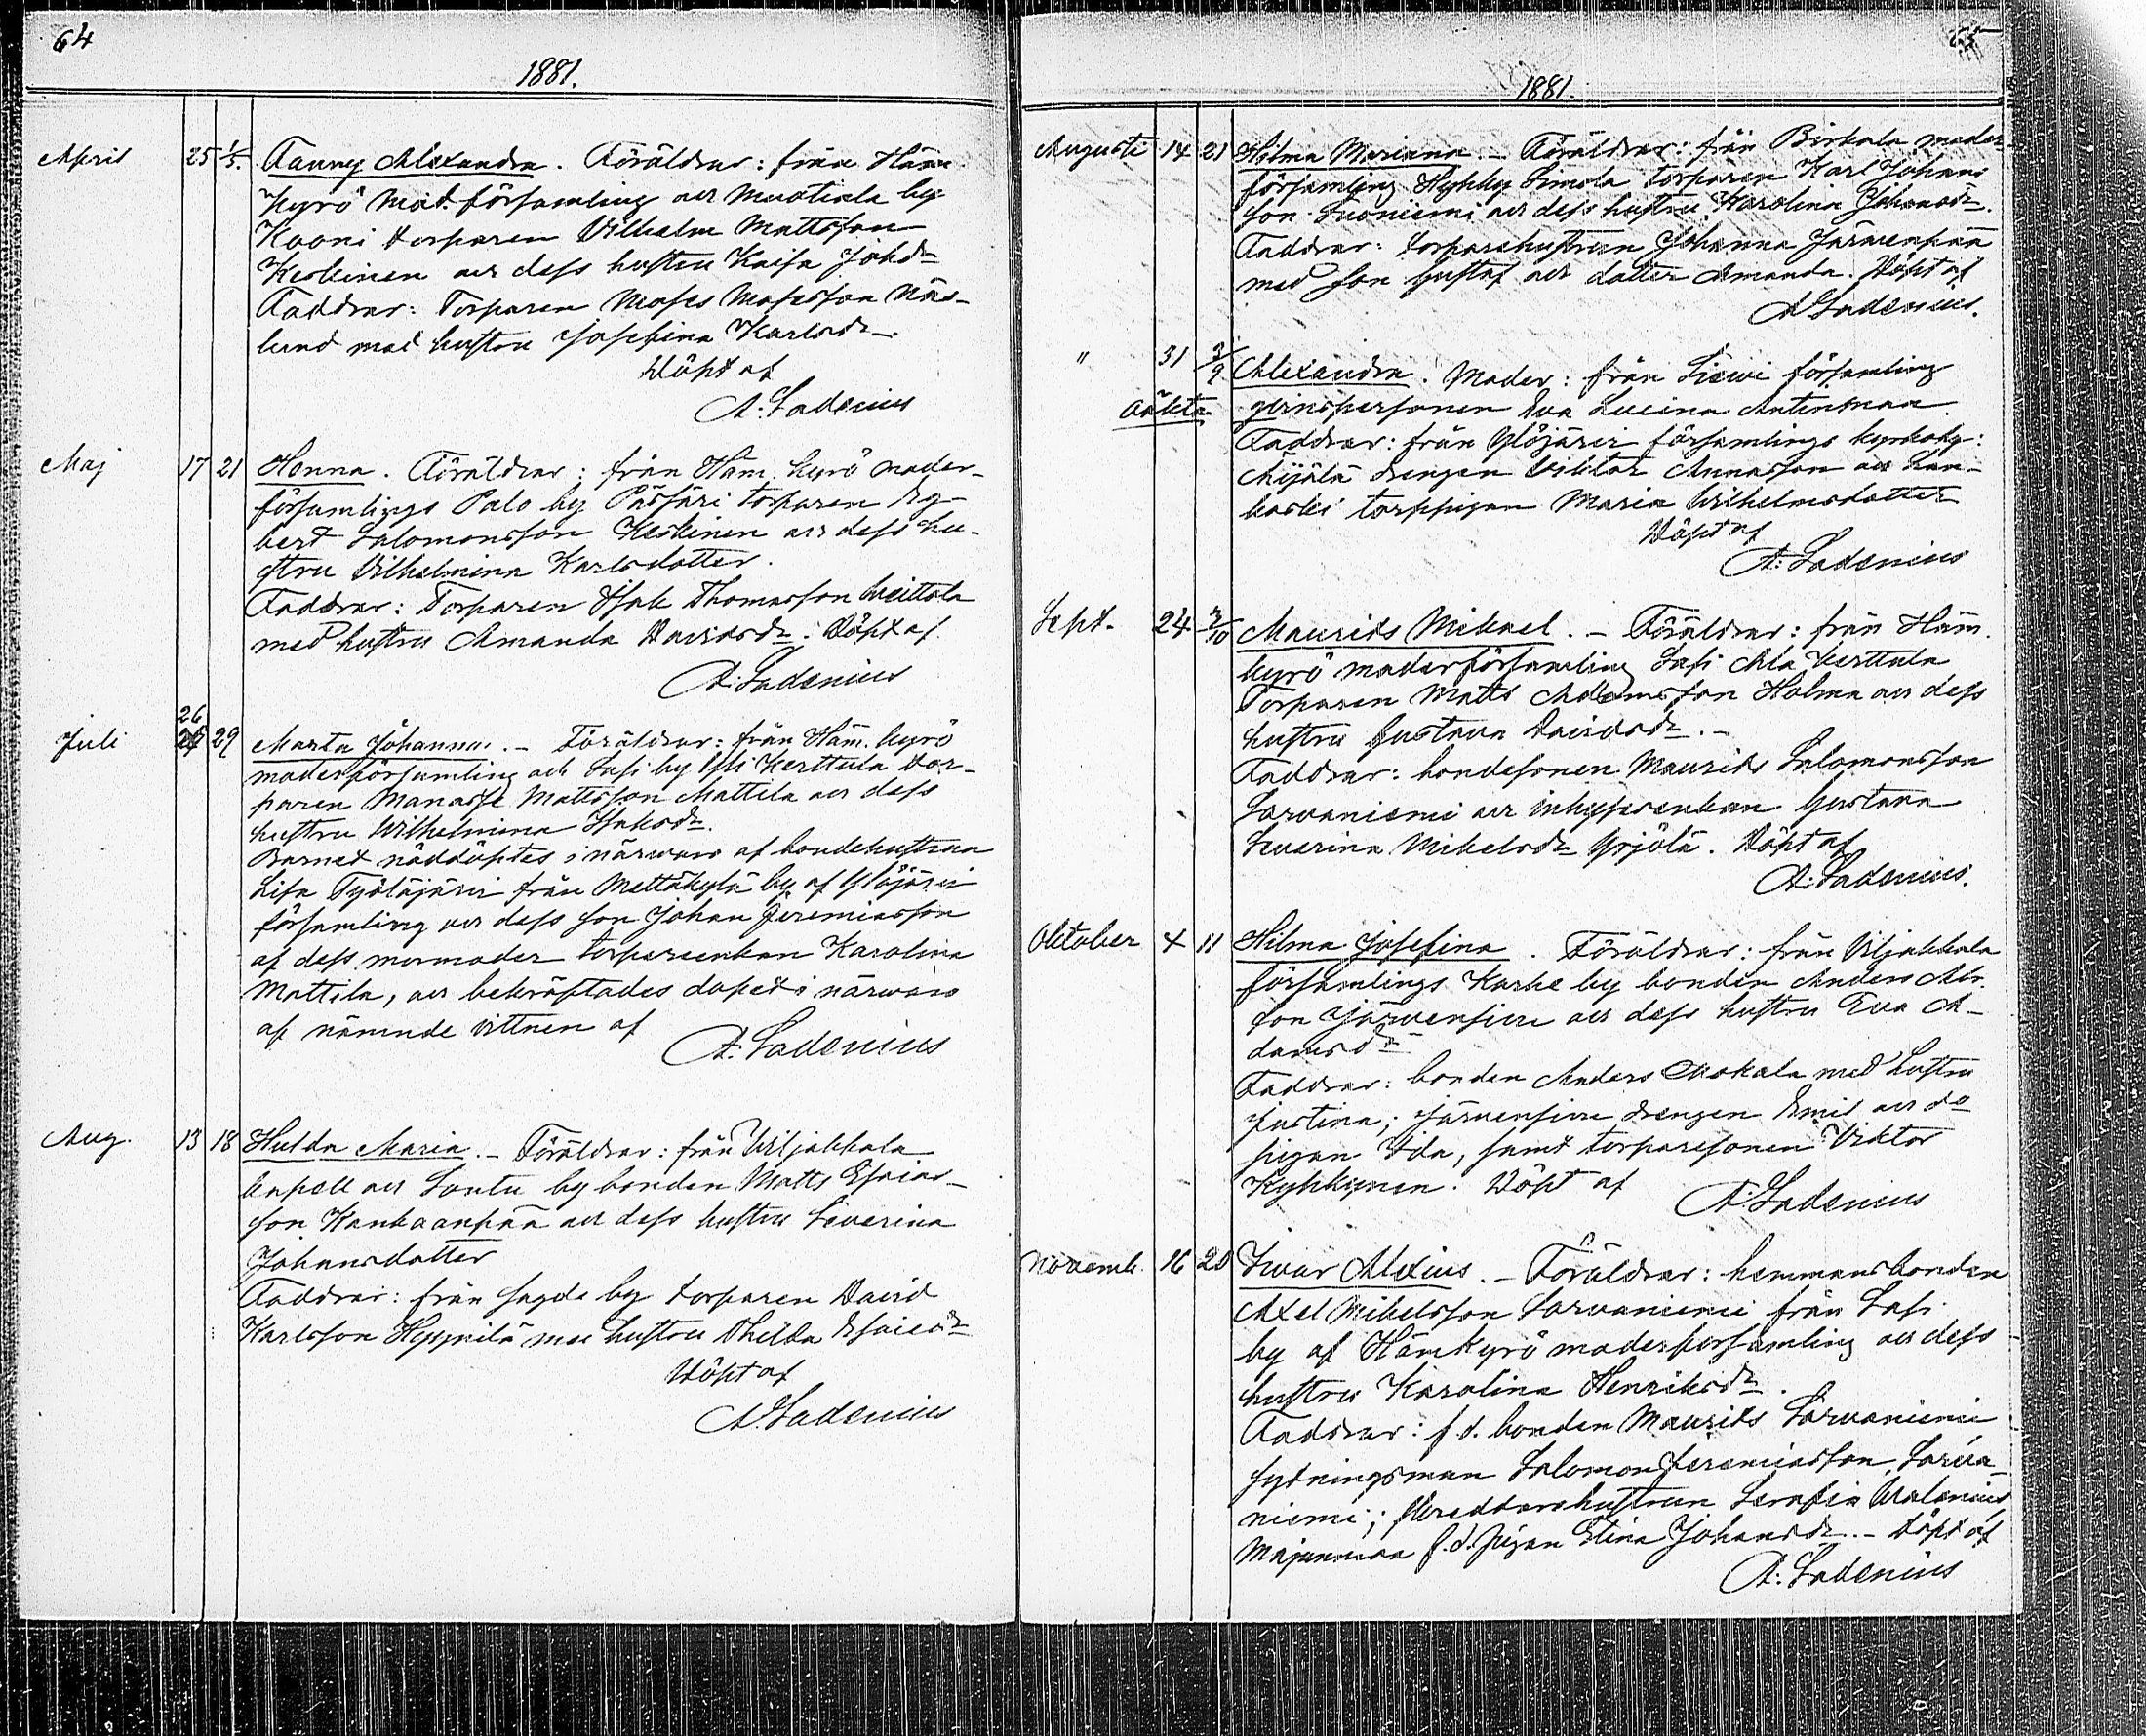 64
1881.
April 25 1/5. Fanny Alexandra. Föräldrar: från Ham.
Kyrö Mod. församling och Muotiala by
Kooni torparen Vilhelm Mattsson
Keskinen och dess hustru Kaisa Johdr
Faddrar: Torparen Moses Mosesson Näs-
lund med hustru Josefina Karlsdr.
Döpt af
A. Ladenius
Maj 17 21 Henna. Föräldrar: från Ham. kyrö moder-
församlings Palo by Pässäri torparen Eg-
bert Salomonsson Keskinen och dess hu-
stru Vilhelmina Karlsdotter.
Faddrar: Torparen Isak Thomasson
med hustru Amanda Davidsdr. Döpt af
A. Ladenius
26
Juli 29 Marta Johanna. – Föräldrar: från Ham. kyrö
moderförsamling och Sasi by Yli Kerttula tor-
paren Manasse Mattsson Mattila och dess
hustru Wilhelmina Isaksdr.
Barnet nöddöptes i närwaro af bondehustrun
Lisa Työläjärvi från Mettäkylä by af Ylöjärvi
församling och dess son Johan Jeremiasson
af dess mormoder torpareenkan Karolina
Mattila, och bekräftades dopet i närwaro
af nämnde vittnen af
A. Ladenius
Aug. 13 18 Hulda Maria. – Föräldrar: från Viljakkala
kapell och Sontu by bonden Matts Esaias-
son Kankaanpää och dess hustru Severina
Johansdotter
Faddrar: från by torparen David
Karlsson Hyynilä med hustru Thilda Esaiasdr
Döpt af
A. Ladenius
65
1881.
Augusti 14 21 Hilma Mariana. – Föräldrar: från Birkala moder-
församling Hyhky Simola torparen Karl Johans
son Suoniemi och dess hustru Karolina Johansdr.
Faddrar: torparehustrun Johanna Järwenpää
med son Gustaf och dotter Amanda. Döpt af
A. Ladenius.
" 31 3/9 Alexandra. Moder: från Siewi församling
oäkta qvinspersonen Eva Lucina Antinmaa.
Faddrar: från Ylöjärvi församlings kyrkoby:
Mijälä drengen Viktor Annasson och Lan-
koski torppigan Maria Wilhelmsdotter
Döpt af
A. Ladenius
Sept. 24 2/10 Maurits Mikael. – Föräldrar: från Ham.
kyrö moderförsamling Sasi Ala Kerttula
Torparen Matts Adamsson Holma och dess
hustru Gustava Davidsdr. –
Faddrar: bondesonen Maurits Salomonsson
Sarvaniemi och inhysesenkan Gustava
Severina Mikelsdr Yrjölä. Döpt af
A. Ladenius.
Oktober 4 11 Hilma Josefina. Föräldrar: från Viljakkala
församlings Karhe by bonden Anders
son Järvensivu och dess hustru Eva A-
damsdr
Faddrar: bonden Anders Mokala med hustru
Justina; Järvensivu drengen Emil och do
pigan Ida, samt torparesonen Viktor
Kyhkynen. Döpt af A. Ladenius
Novemb. 16 20 Ivar Alexius. – Föräldrar: hemmansbonden
Axel Mikelsson Sarvaniemi från Sasi
by af Hämkyrö moderförsamling och dess
hustru Karolina Henriksdr.
Faddrar: f.d. bonden Maurits Sarvaniemi
sytningsman Salomon Jeremiasson Sarva-
niemi; hustrun Serafia
f.d. pigan Stina Johansdr. – Döpt af
A. Ladenius